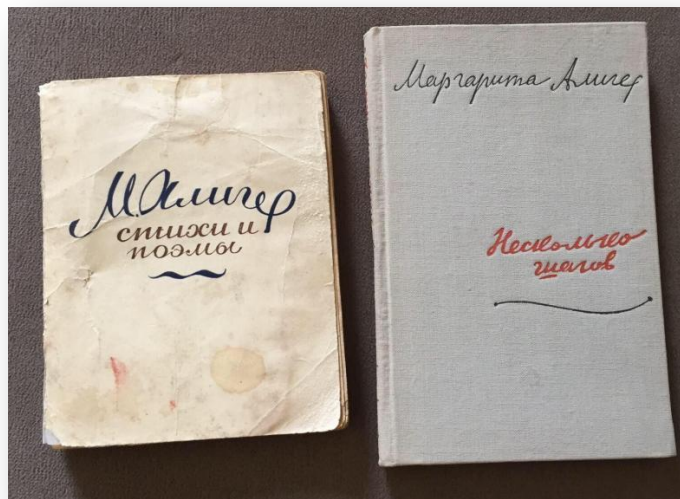 М. Алигер
стихи и
поэмы
Маргарита Алигер
Несколько
шагов